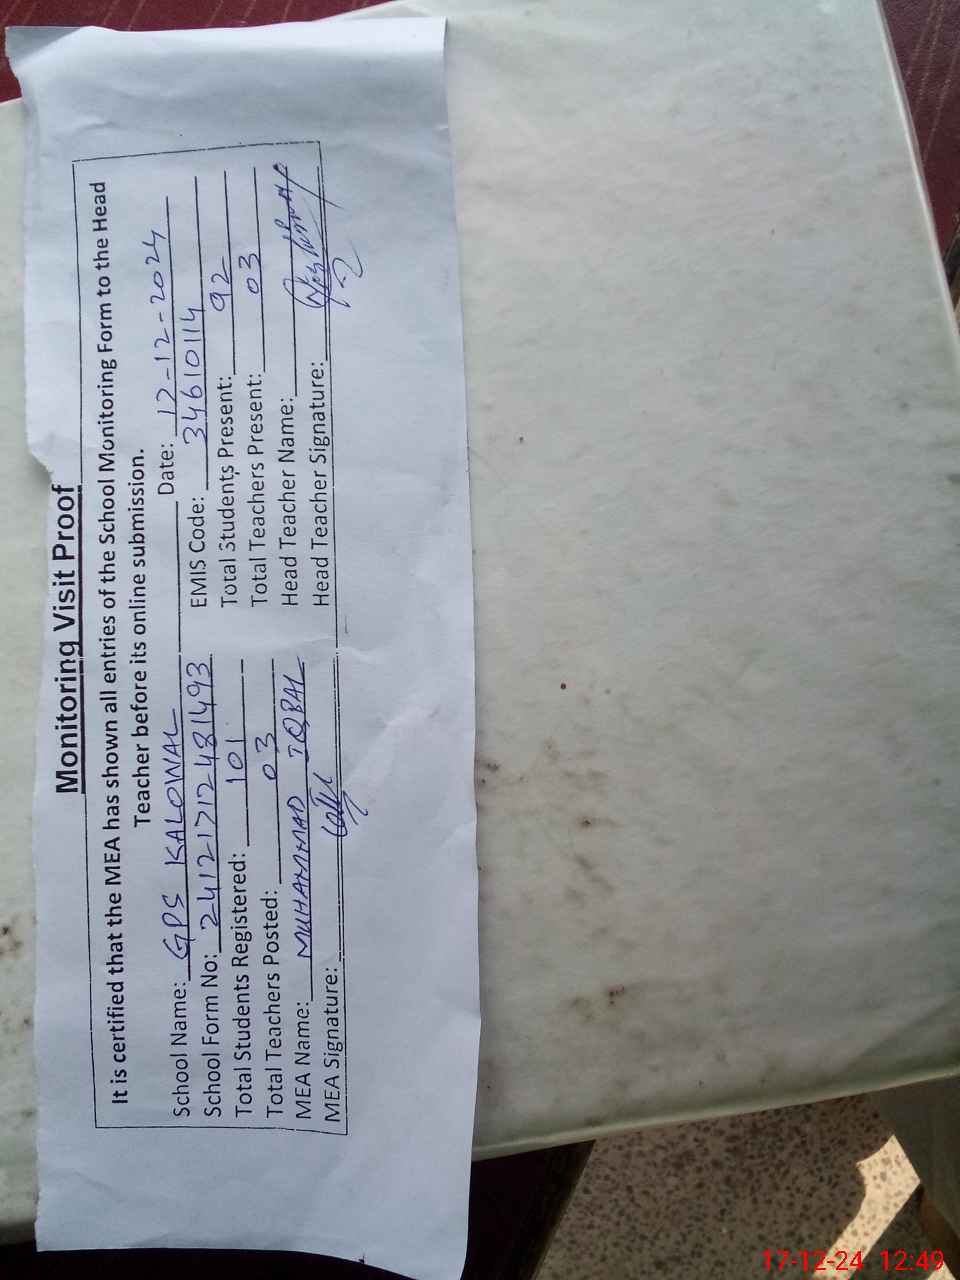 Monitoring Visit Proof
It is certified that the MEA has shown all entries of the School Monitoring Form to the Head
Teacher before its online submission.
School Name: GPS KALOWAL Date: 17-12-2024
School Form No: 24121712481493 EMIS Code: 34610114
Total Students Registered: 101 Total Students Present: 92
Total Teachers Posted: 03 Total Teachers Present: 03
MEA Name: MUHAMMAD IQBAL Head Teacher Name:
MEA Signature: Head Teacher Signature:
17-12-24 12:49